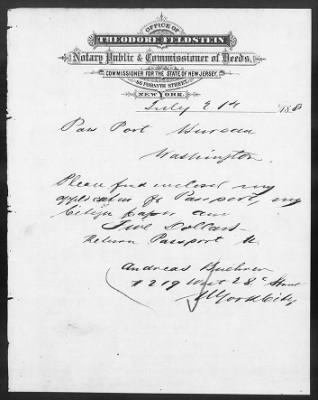 OFFICE OF
THEODORE FELDSTEIN
Notary Public & Commissioner of Deeds.
COMMISSIONER FOR THE STATE OF NEW JERSEY,
FORSYTH STREET,
NEW YORK.
July 2 188
Pass Port Bureau
Washington.
Please find inclosed my
application of Passport, my
Citizen paper and
Dollars
Return Passport to
Andreas
# 219 West 28 Street
N York City